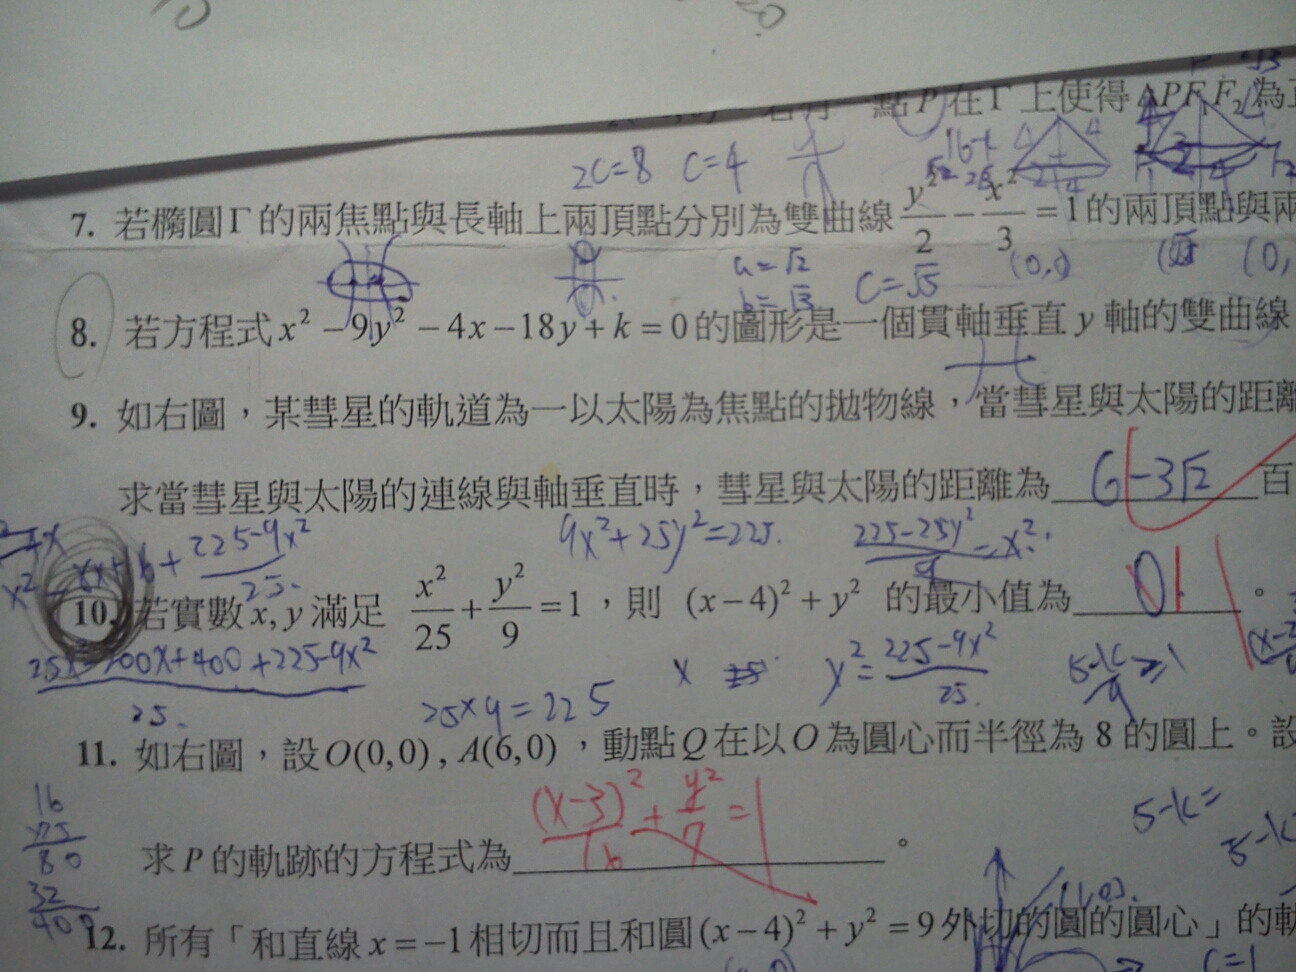 一點P在Γ上使得△PF₁F₂為
2C=8 C=4
7. 若橢圓Γ的兩焦點與長軸上兩頂點分別為雙曲線 y²/2 − x²/3 = 1的兩頂點與兩
a=√2
b=√3
C=√5
8. 若方程式x² − 9y² − 4x − 18y + k = 0的圖形是一個貫軸垂直y軸的雙曲線
9. 如右圖，某彗星的軌道為一以太陽為焦點的拋物線，當彗星與太陽的距離
求當彗星與太陽的連線與軸垂直時，彗星與太陽的距離為 6−3√2 百
9x²+25y²=225. (225−25y²)/9 = x².
10. 若實數x, y滿足 x²/25 + y²/9 = 1，則 (x−4)² + y² 的最小值為 1 。
25x²−200x+400+225−9x²
25.
y²= (225−9x²)/25.
25×9=225
11. 如右圖，設O(0,0), A(6,0)，動點Q在以O為圓心而半徑為8的圓上。設
(x−3)²/16 + y²/7 = 1
16
×25
80
32
400
5−k=
求P的軌跡的方程式為 。
(1,0).
12. 所有「和直線x = −1相切而且和圓(x − 4)² + y² = 9外切的圓的圓心」的軌
C=1